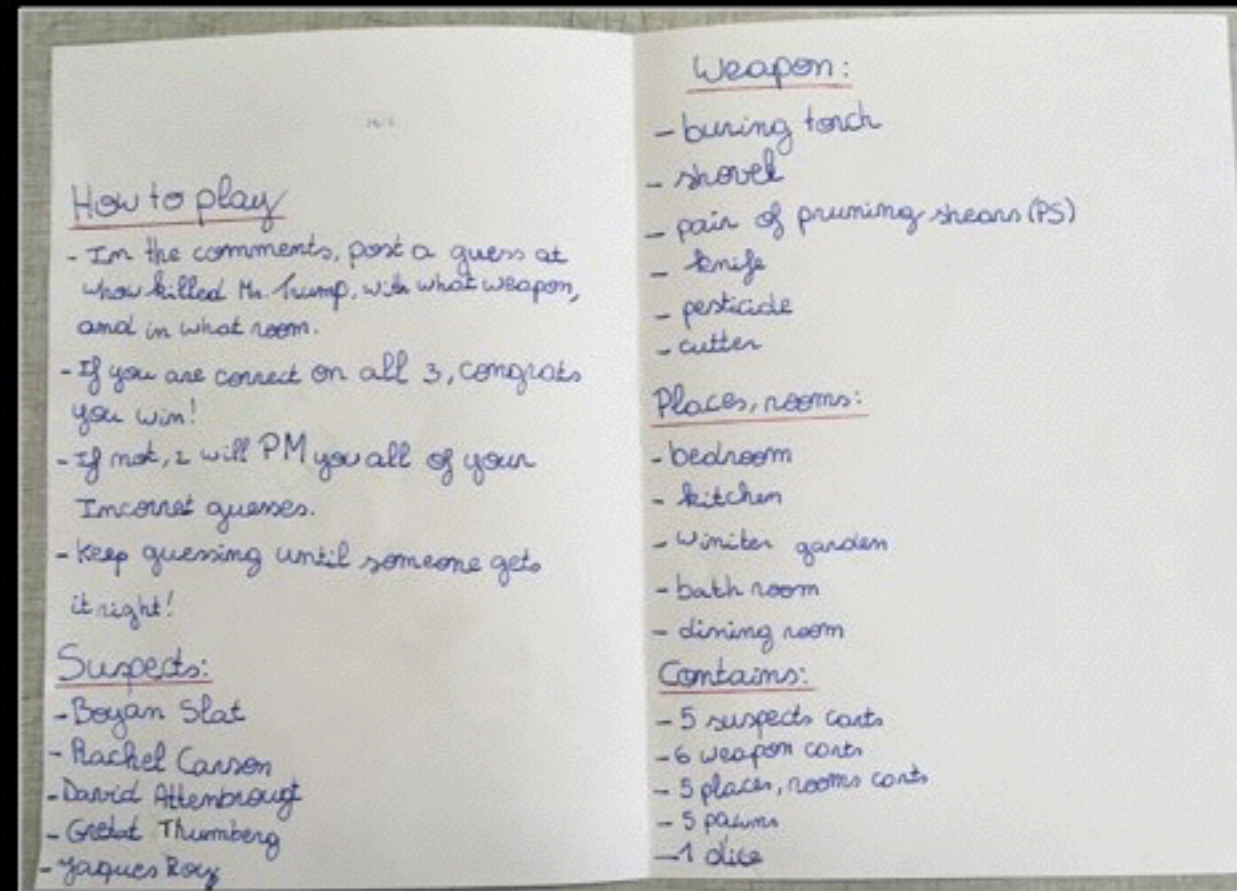 How to play
- In the comments, post a guess at
whow killed Mr. Trump, with what weapon,
and in what room.
- If you are correct on all 3, congrats
you win!
- If not, I will PM you all of your
Incorret guesses.
- Keep guessing until someone gets
it right!
Suspects:
- Boyan Slat
- Rachel Carson
- David Attenbrougt
- Gretat Thumberg
- Jaques Roy
Weapon:
- buring torch
- shovel
- pair of pruning shears (PS)
- knife
- pesticide
- cutter
Places, rooms:
- bedroom
- kitchen
- winiter garden
- bath room
- dining room
Contains:
- 5 suspects carts
- 6 weapon carts
- 5 places, rooms carts
- 5 pawns
- 1 dice